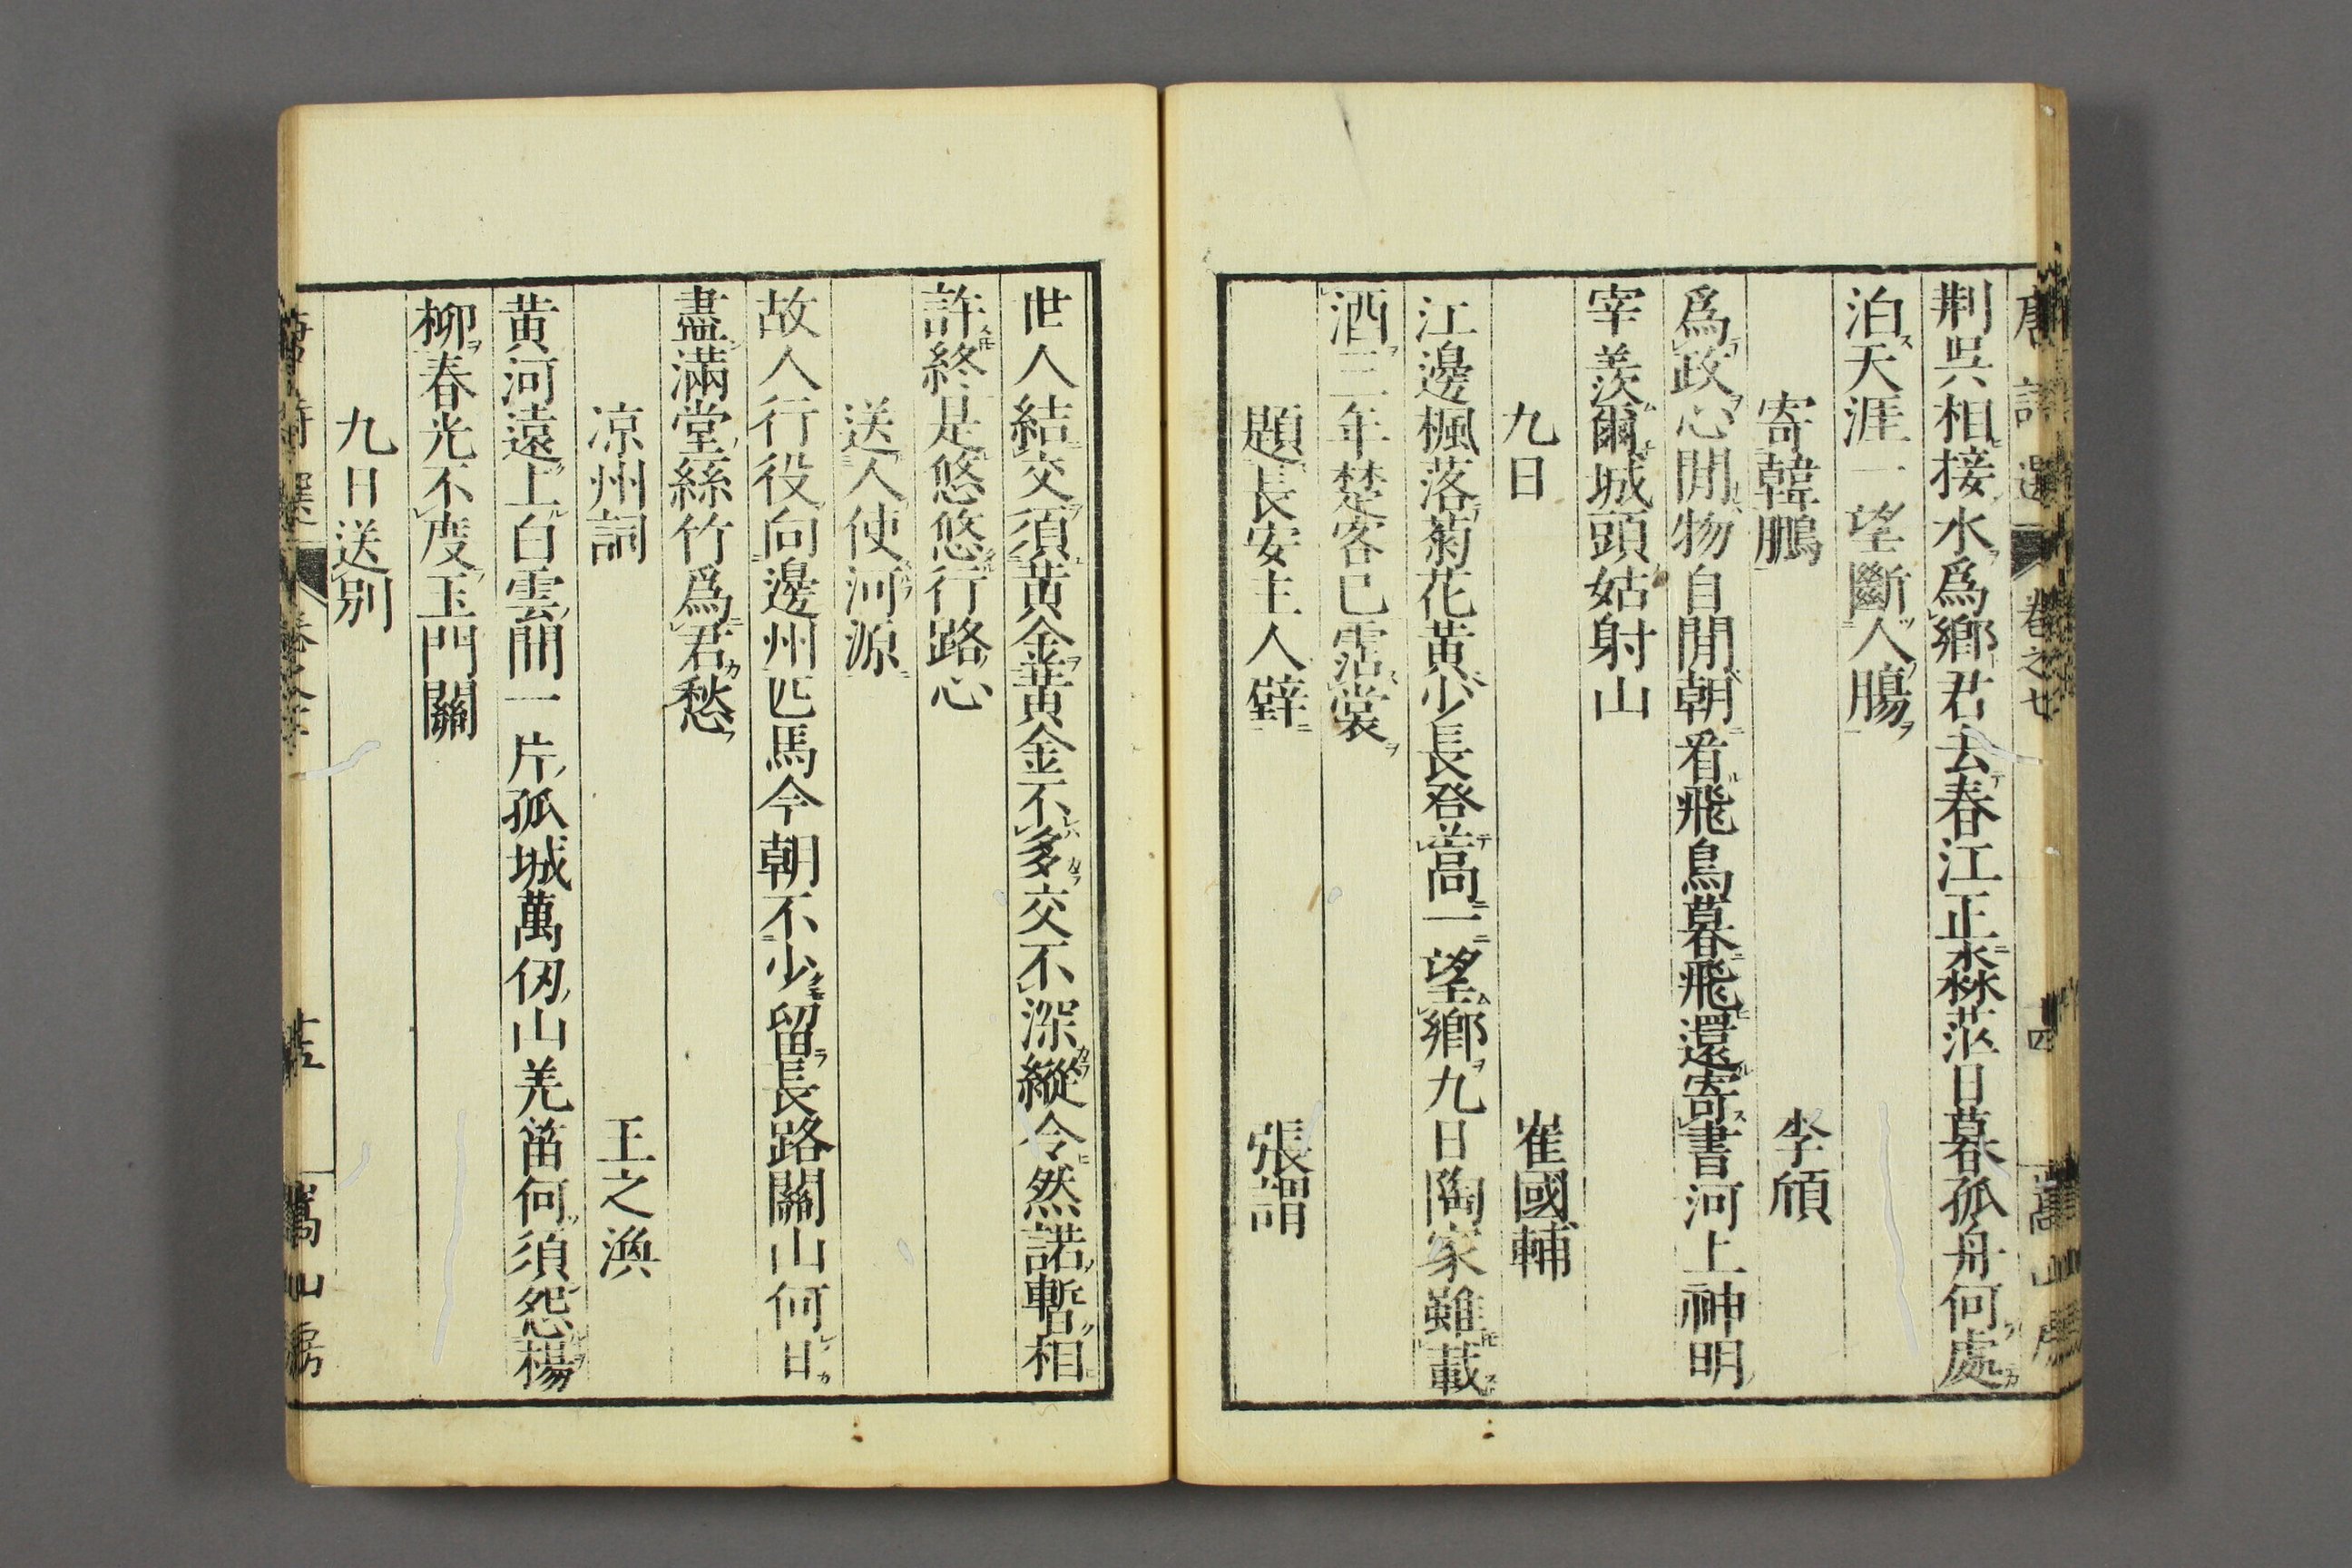 唐詩選 卷之七 十四 嵩山房
荆吳相接水爲鄉君去春江正淼茫日暮孤舟何處
泊天涯一望斷人腸
寄韓鵬 李頎
爲政心閒物自閒朝看飛鳥暮飛還寄書河上神明
宰羨爾城頭姑射山
九日 崔國輔
江邊楓落菊花黃少長登高一望鄉九日陶家雖載
酒三年楚客已霑裳
題長安主人壁 張謂
世人結交須黃金黃金不多交不深縱令然諾暫相
許終是悠悠行路心
送人使河源
故人行役向邊州匹馬今朝不少留長路關山何日
盡滿堂絲竹爲君愁
涼州詞 王之渙
黃河遠上白雲閒一片孤城萬仞山羌笛何須怨楊
柳春光不度玉門關
九日送別
唐詩選 卷之七 十五 嵩山房